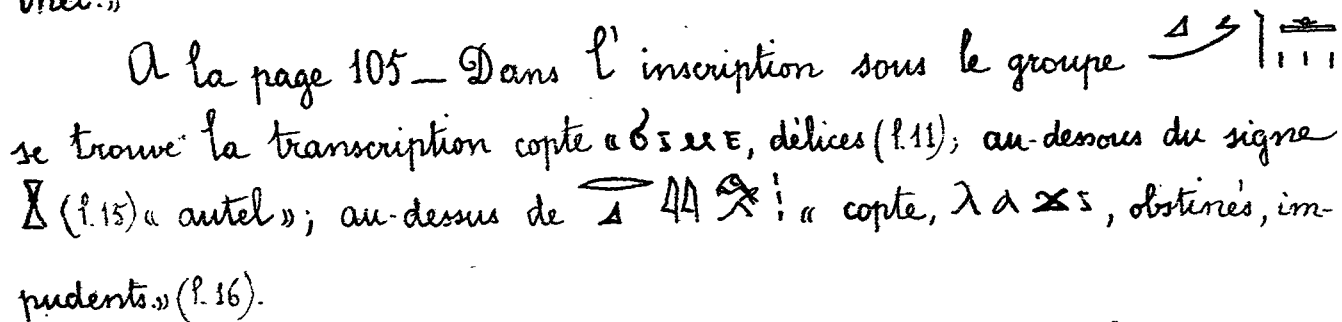 A la page 105 — Dans l'inscription sous le groupe
se trouve la transcription copte « ϭⲓⲙⲉ, délices (l. 11); au-dessous du signe
(l. 15) « autel »; au-dessus de « copte, ⲗⲁϫⲓ, obstinés, im-
pudents.» (l. 16).